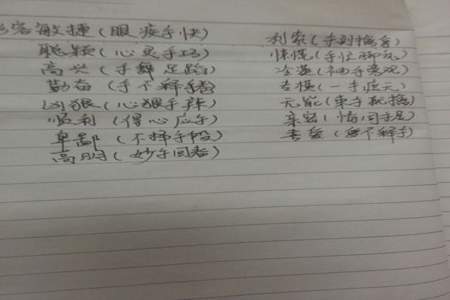 形容敏捷(眼疾手快)
聪颖(心灵手巧)
高兴(手舞足蹈)
勤奋(手不释卷)
凶狠(心狠手辣)
顺利(得心应手)
卑鄙(不择手段)
高明(妙手回春)
利索(手到擒拿)
慌慌(手忙脚乱)
冷漠(袖手旁观)
(一手)
无能(束手无策)
亲密(情同手足)
(爱不释手)